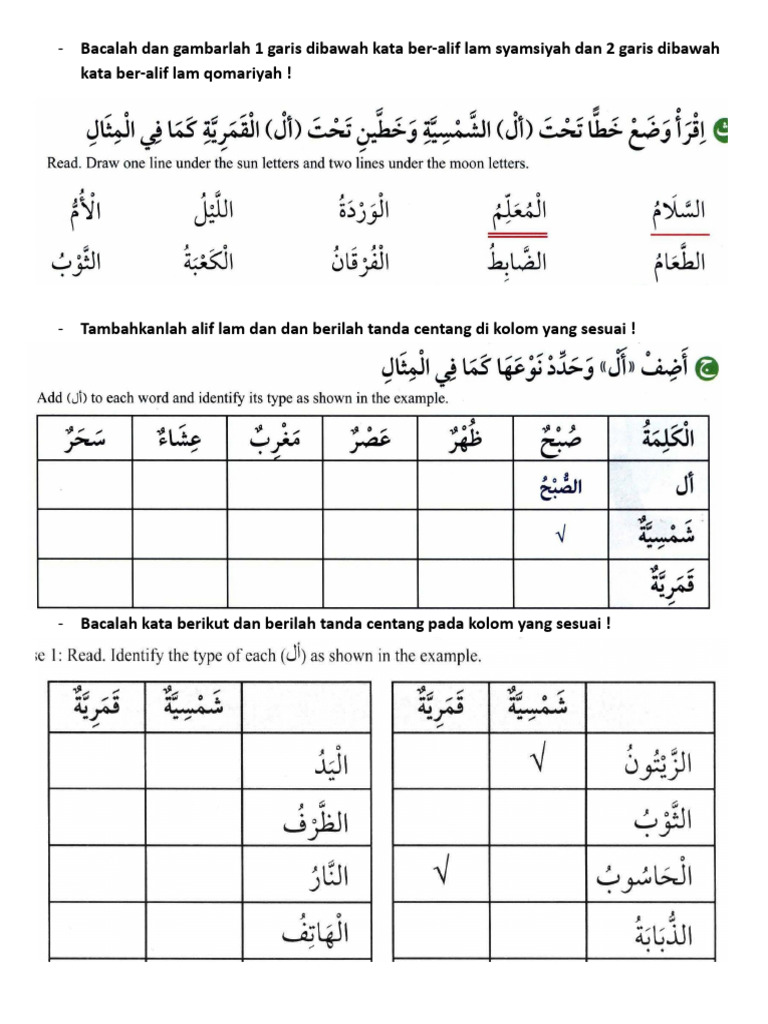 - Bacalah dan gambarlah 1 garis dibawah kata ber-alif lam syamsiyah dan 2 garis dibawah
kata ber-alif lam qomariyah !
ث اِقْرَأْ وَضَعْ خَطًّا تَحْتَ (أَلْ) الشَّمْسِيَّةِ وَخَطَّيْنِ تَحْتَ (أَلْ) الْقَمَرِيَّةِ كَمَا فِي الْمِثَالِ
Read. Draw one line under the sun letters and two lines under the moon letters.
السَّلَامُ الْمُعَلِّمُ الْوَرْدَةُ اللَّيْلُ الْأُمُّ
الطَّعَامُ الضَّابِطُ الْفُرْقَانُ الْكَعْبَةُ الثَّوْبُ
- Tambahkanlah alif lam dan dan berilah tanda centang di kolom yang sesuai !
ج أَضِفْ «أَلْ» وَحَدِّدْ نَوْعَهَا كَمَا فِي الْمِثَالِ
Add (أل) to each word and identify its type as shown in the example.
الْكَلِمَةُ صُبْحٌ ظُهْرٌ عَصْرٌ مَغْرِبٌ عِشَاءٌ سَحَرٌ
أل الصُّبْحُ
شَمْسِيَّةٌ √
قَمَرِيَّةٌ
- Bacalah kata berikut dan berilah tanda centang pada kolom yang sesuai !
se 1: Read. Identify the type of each (أل) as shown in the example.
شَمْسِيَّةٌ قَمَرِيَّةٌ شَمْسِيَّةٌ قَمَرِيَّةٌ
الزَّيْتُونُ √ الْيَدُ
الثَّوْبُ الظَّرْفُ
الْحَاسُوبُ √ النَّارُ
الذُّبَابَةُ الْهَاتِفُ